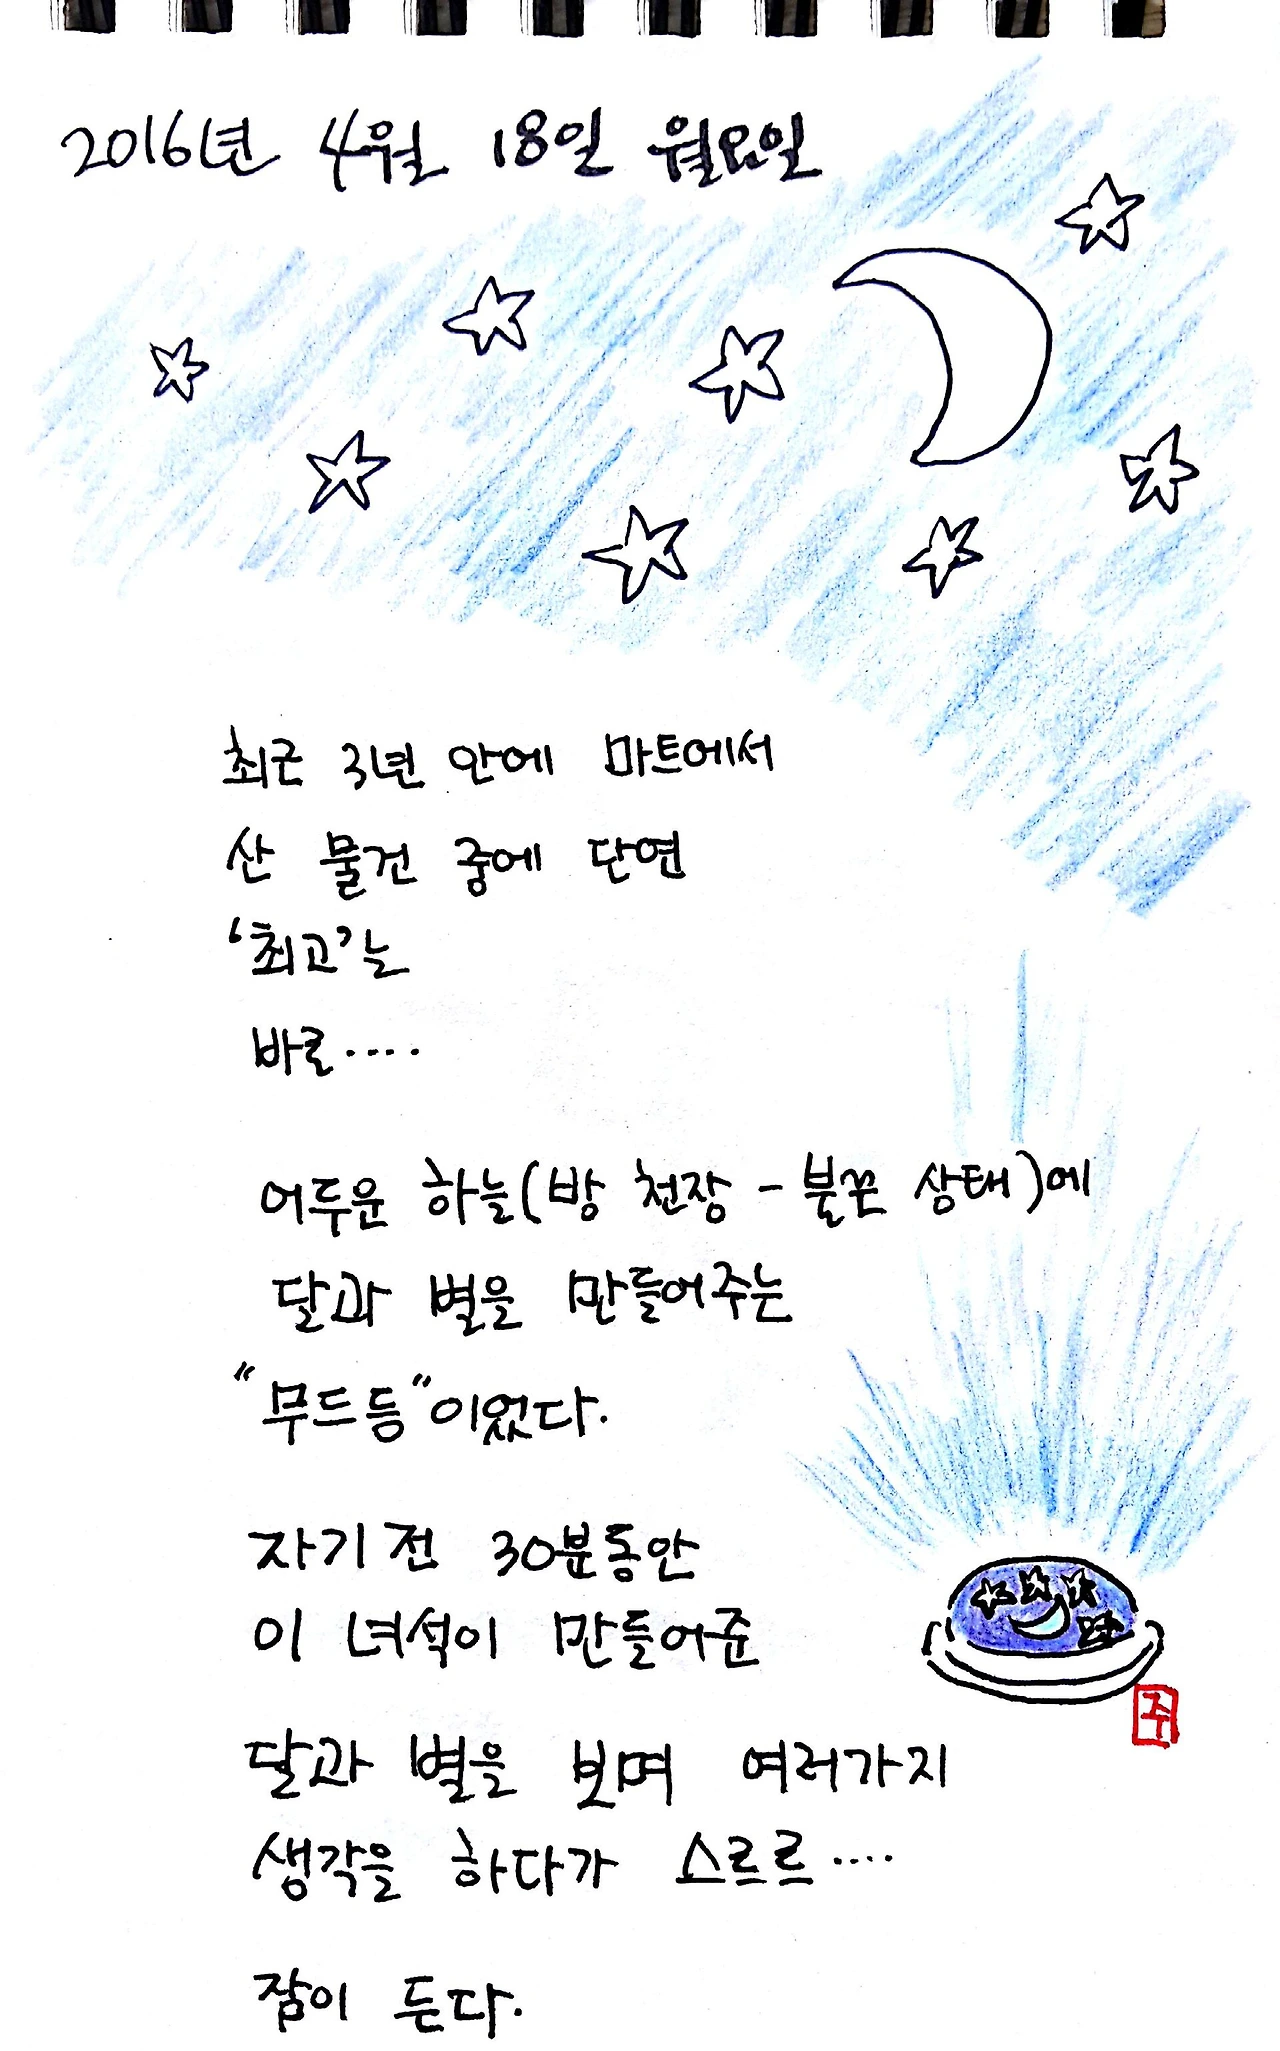 2016년 4월 18일 월요일
최근 3년 안에 마트에서
산 물건 중에 단연
‘최고’는
바로····
어두운 하늘(방 천장 - 불끈 상태)에
달과 별을 만들어주는
“무드등”이었다.
자기 전 30분동안
이 녀석이 만들어준
주
달과 별을 보며 여러가지
생각을 하다가 스르르····
잠이 든다.